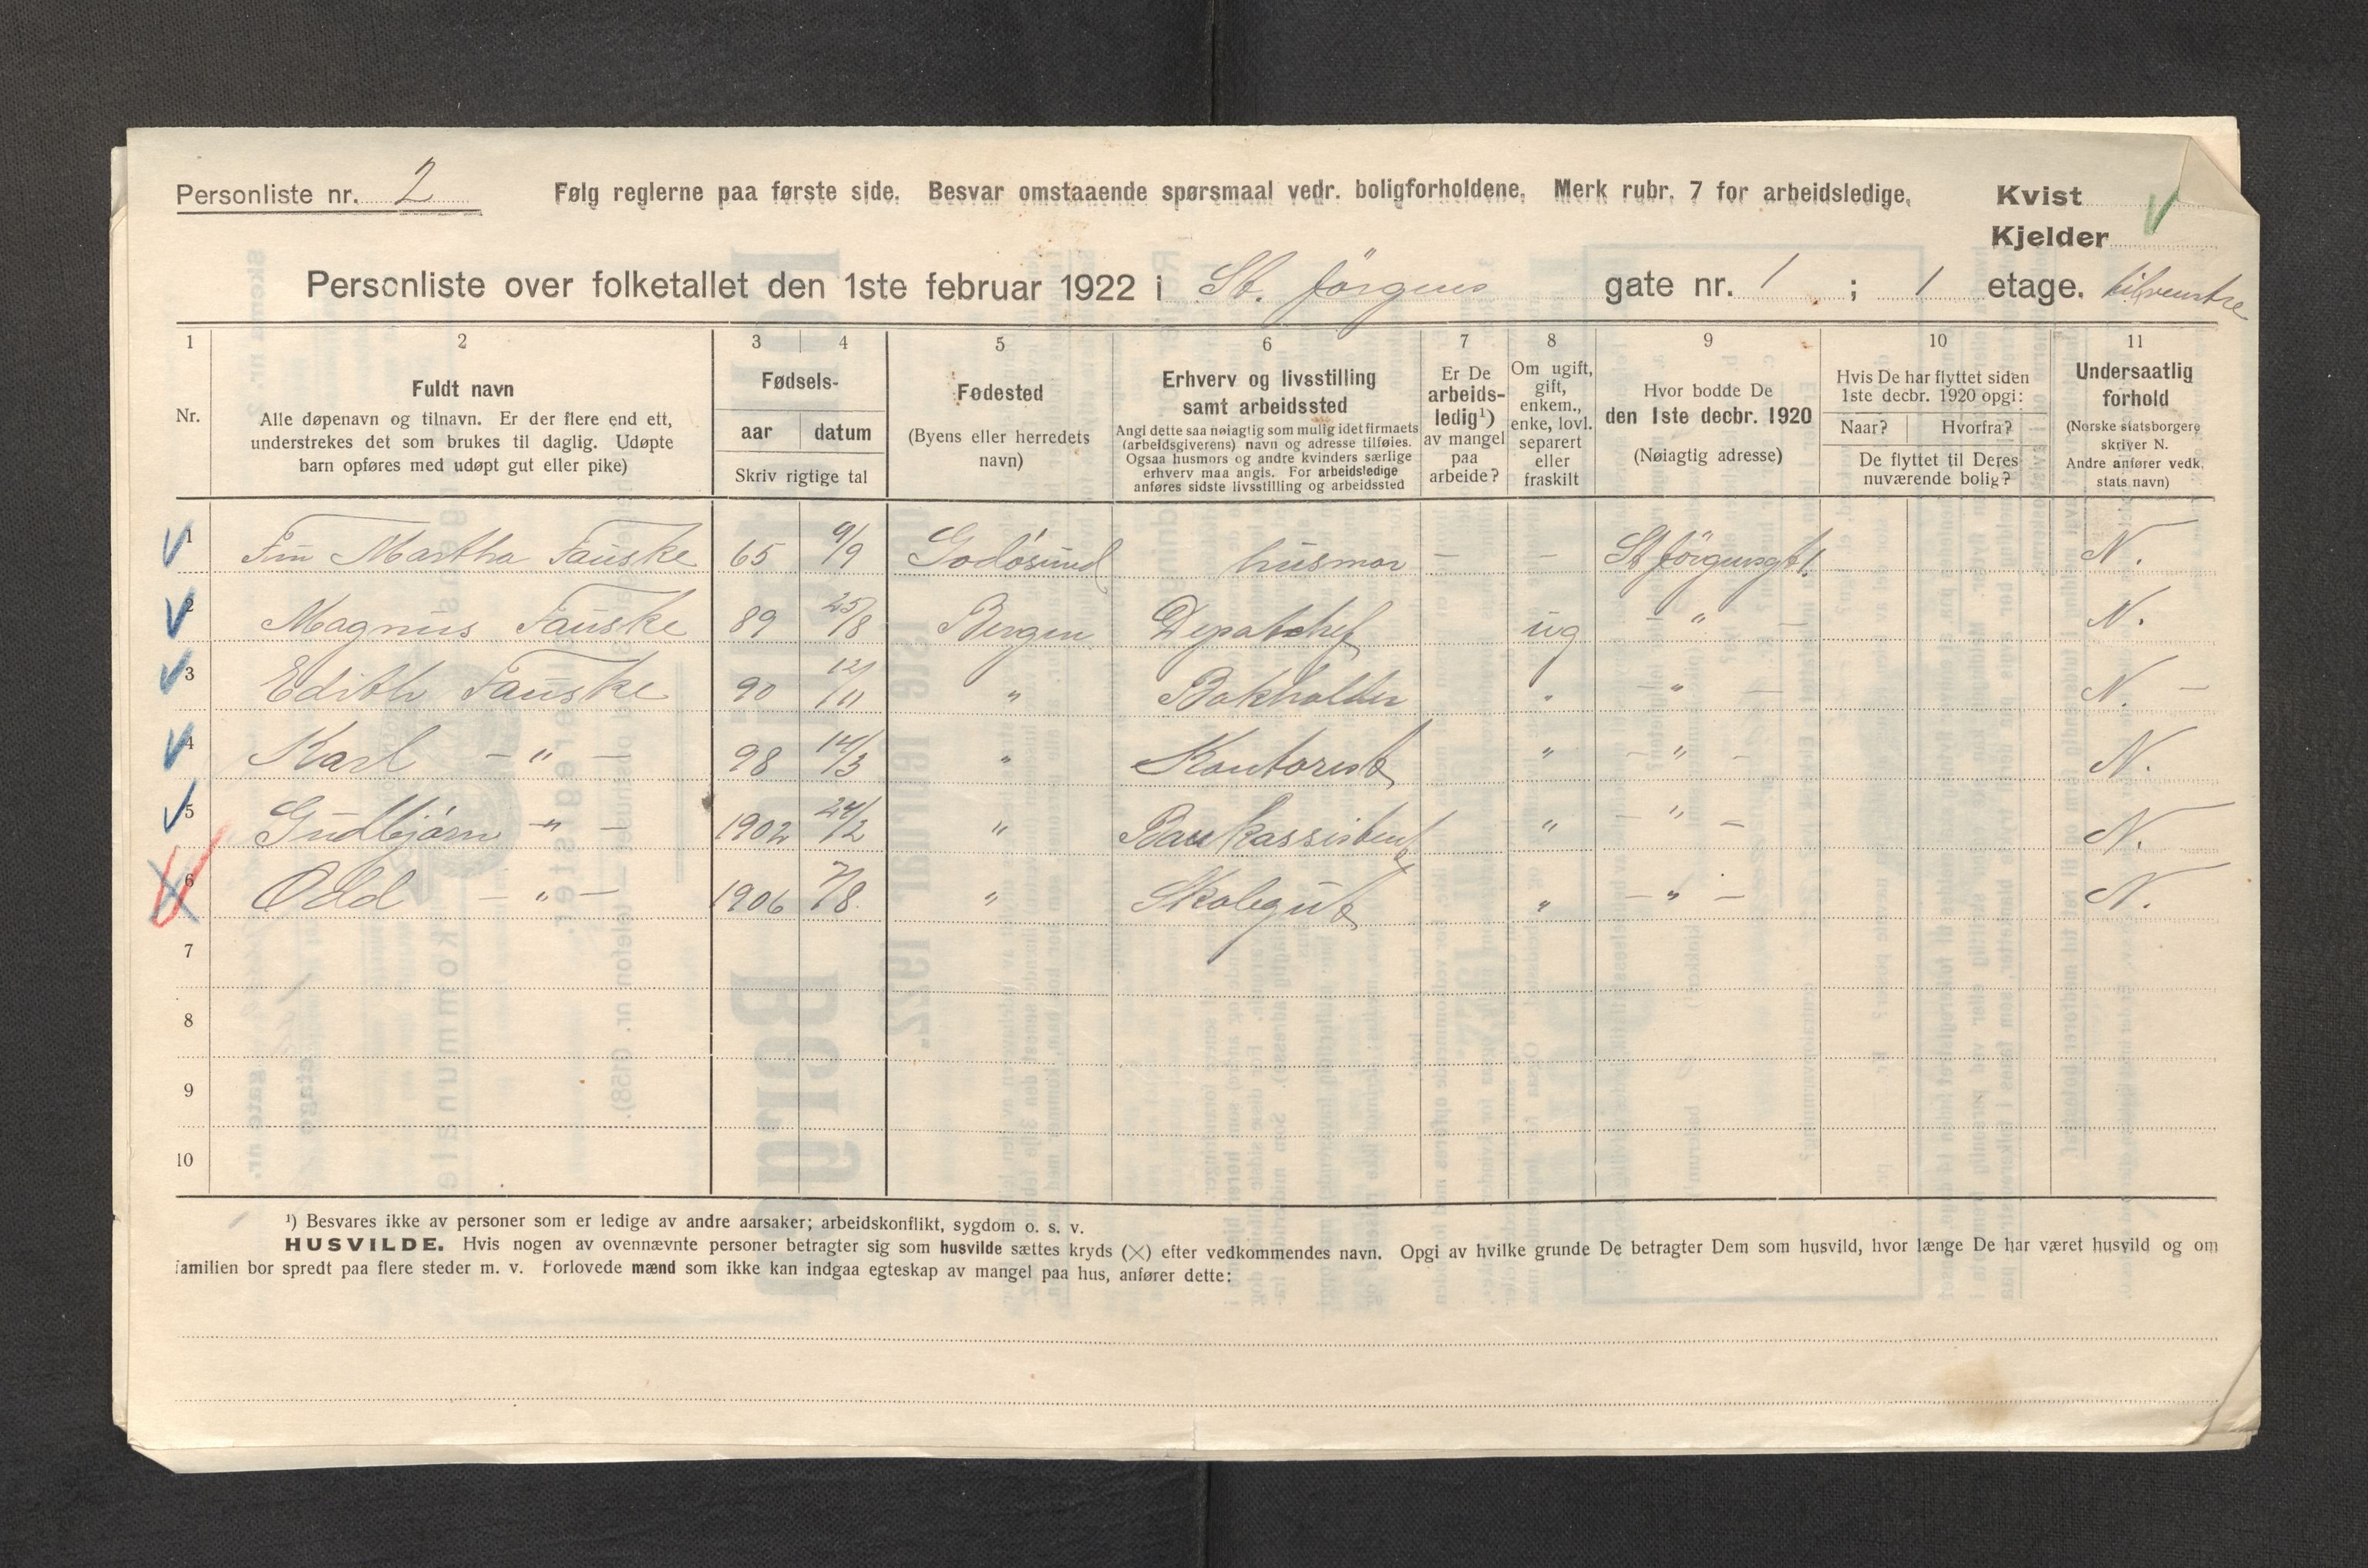 Personliste nr. 2 Følg reglerne paa første side. Besvar omstaaende spørsmaal vedr. boligforholdene. Merk rubr. 7 for arbeidsledige. Kvist
Kjelder
Personliste over folketallet den 1ste februar 1922 i St. Jörgens gate nr. 1 ; 1 etage. tilvenstre
1 2 3 4 5 6 7 8 9 10 11
Nr.
Fuldt navn
Alle døpenavn og tilnavn. Er der flere end ett,
understrekes det som brukes til daglig. Udøpte
barn opføres med udøpt gut eller pike)
Fødsels-
aar datum
Skriv rigtige tal
Fødested
(Byens eller herredets
navn)
Erhverv og livsstilling
samt arbeidssted
Angi dette saa nøiagtig som mulig idet firmaets
(arbeidsgiverens) navn og adresse tilføies.
Ogsaa husmors og andre kvinders særlige
erhverv maa angis. For arbeidsledige
anføres sidste livsstilling og arbeidssted
Er De
arbeids-
ledig¹)
av mangel
paa
arbeide?
Om ugift,
gift,
enkem.,
enke, lovl.
separert
eller
fraskilt
Hvor bodde De
den 1ste decbr. 1920
(Nøiagtig adresse)
Hvis De har flyttet siden
1ste decbr. 1920 opgi:
Naar? Hvorfra?
De flyttet til Deres
nuværende bolig?
Undersaatlig
forhold
(Norske statsborgere
skriver N.
Andre anfører vedk.
stats navn)
1 Martha Fauske 65 9/9 Godösund husmor — — St Jörgensgt 1. N.
2 Magnus Fauske 89 25/8 Bergen Depotchef ug — " — N.
3 Edith Fauske 90 12/11 " Bokholder " — " — N. —
4 Karl — " — 98 14/3 " Kontorist " — " — N.
5 Gudbjörn — " — 1902 24/2 " Bankassistent " — " — N.
6 Odd — " — 1906 7/8. " Skolegut " — " — N.
7
8
9
10
¹) Besvares ikke av personer som er ledige av andre aarsaker; arbeidskonflikt, sygdom o. s. v.
HUSVILDE. Hvis nogen av ovennævnte personer betragter sig som husvilde sættes kryds (×) efter vedkommendes navn. Opgi av hvilke grunde De betragter Dem som husvild, hvor længe De har været husvild og om
familien bor spredt paa flere steder m. v. Forlovede mænd som ikke kan indgaa egteskap av mangel paa hus, anfører dette: